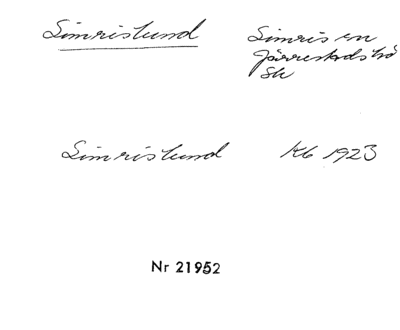 Simrislund Simris sn
Järrestads hd
Sk
Simrislund Kb 1923
Nr 21952